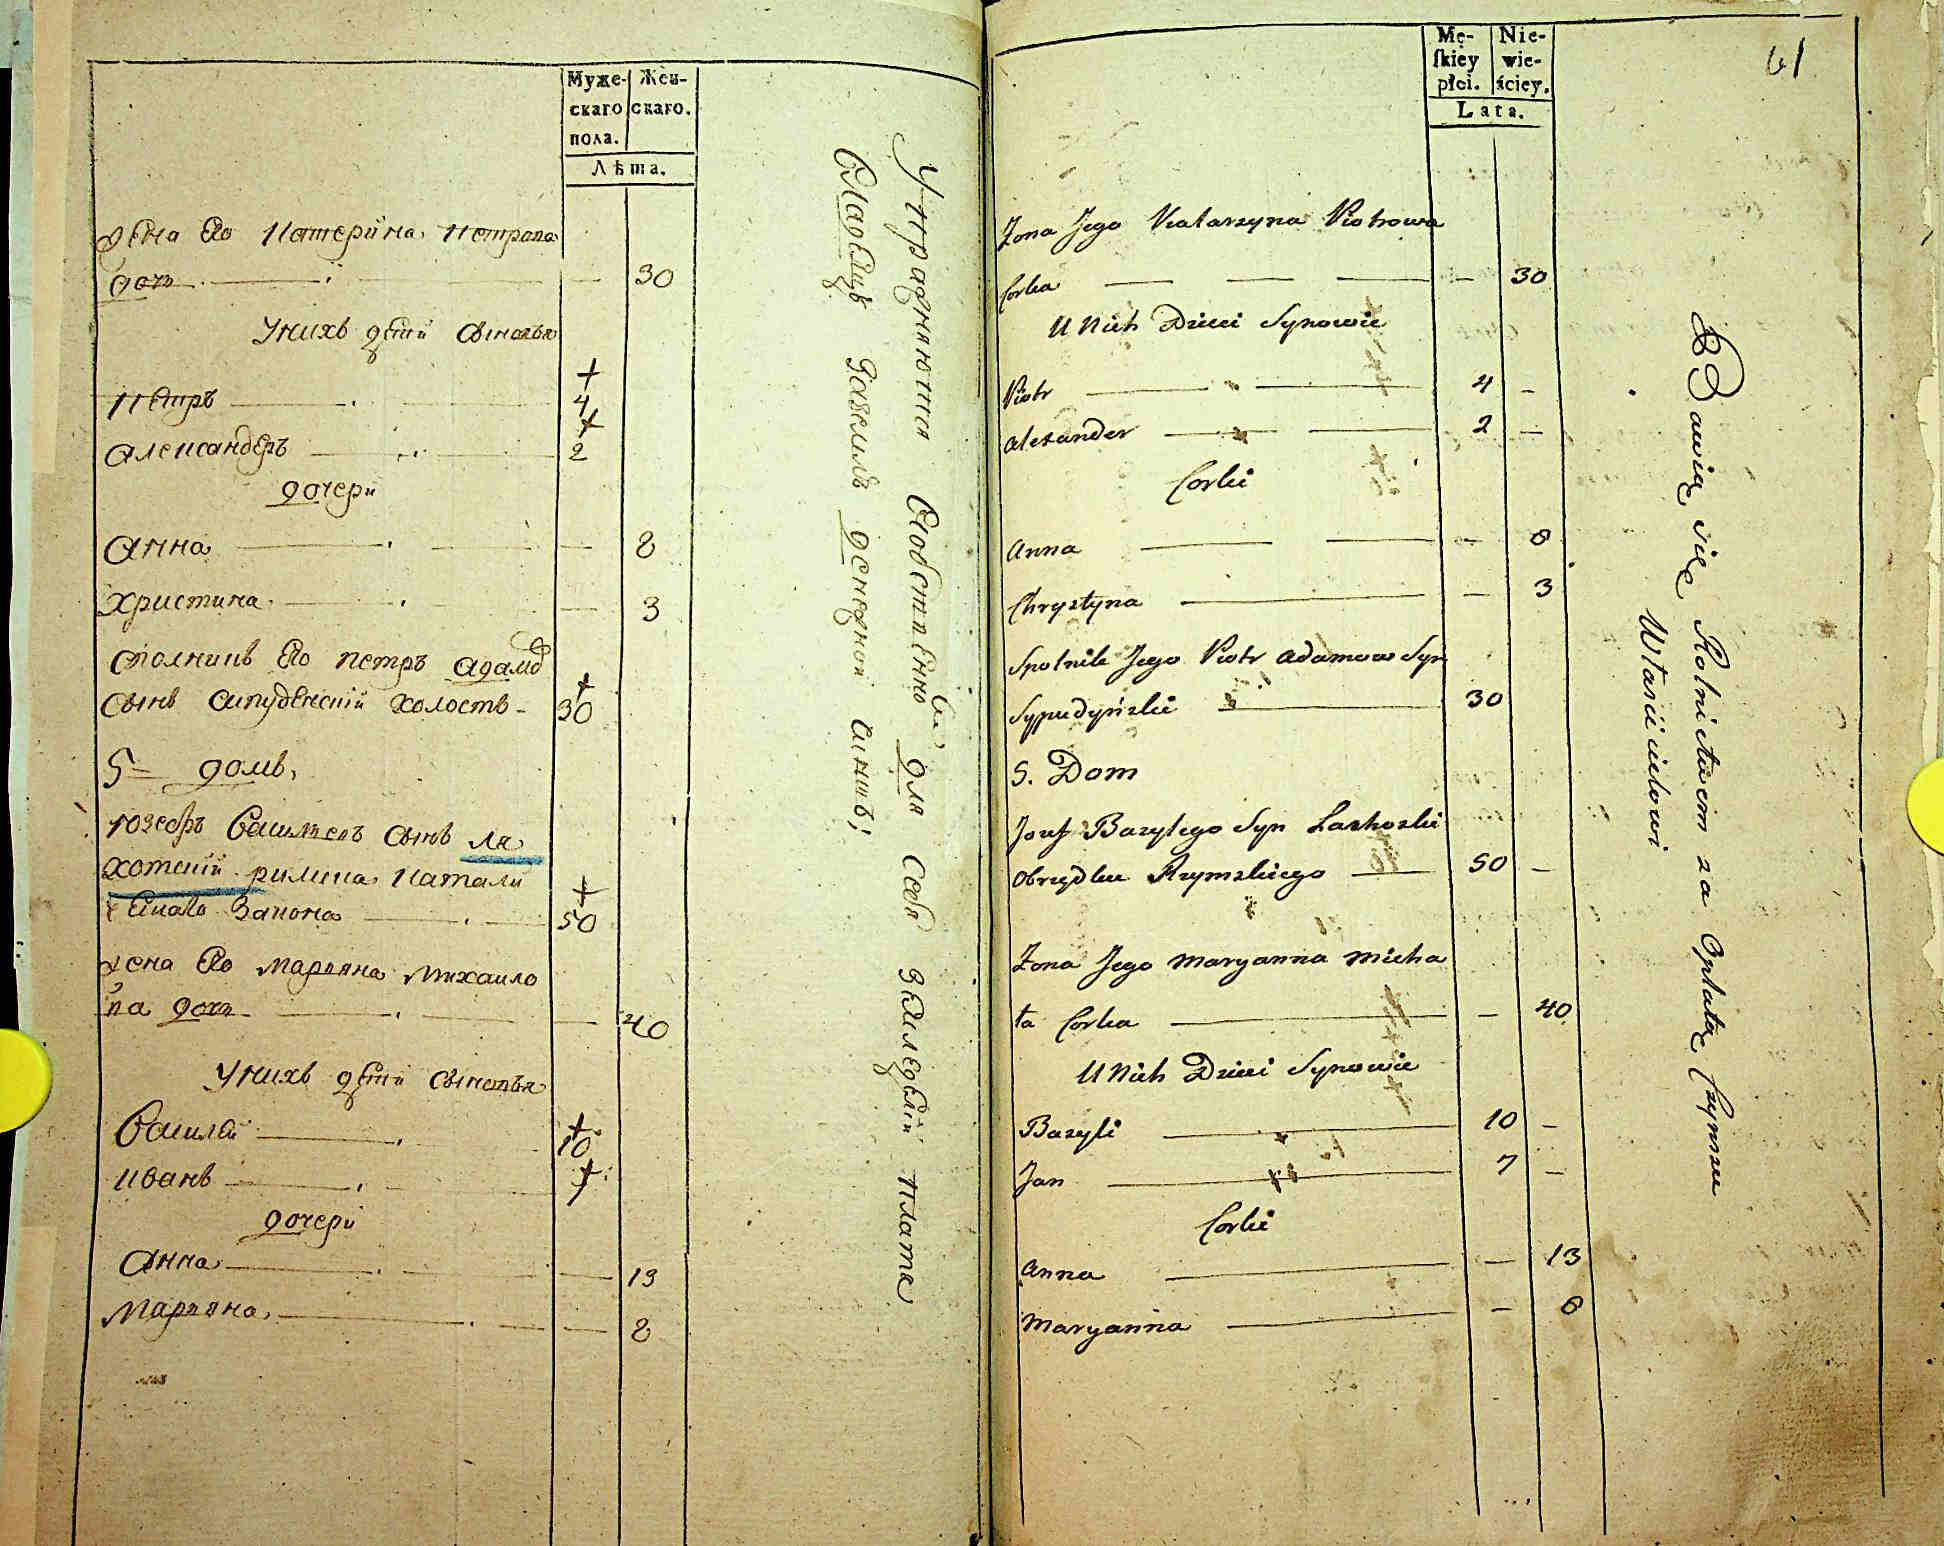 Муже-
скаго
пола.
Жен-
скаго.
Лѣта.
жена Его Катерина Петрова
дочь 30
Унихъ дѣти сыновья
Петръ 4
Александеръ 2
дочери
Анна 8
Христина 3
сполникъ Его Петръ Адамовъ
сынъ Сипудзенскій холостъ 30
5 домъ,
Юзефъ Васильевъ сынъ Ля
хотскій римска католи
ческаго закона 50
жена Его Марьяна Михаило
ва дочь 40
Унихъ дѣти сыновья
Василей 10
Иванъ 7
дочери
Анна 13
Марьяна 8
Упражняются Собственно для Себя Земледѣлии плате
Владѣльцу Земель денежной чиншъ;
61
Mę-
skiey
płci.
Nie-
wie-
ściey.
Lata.
Żona Jego Katarzyna Piotrowa
Corka — 30
U Nich Dzieci Synowie
Piotr 4 —
Alexander 2 —
Corki
Anna — 8
Chrystyna — 3
Spolnik Jego Piotr Adamow Syn
Sypudyński 30
5. Dom
Jozef Bazylego Syn Lachoski
Obrządku Rzymskiego 50 —
Żona Jego Maryanna Micha
ła Corka — 40
U Nich Dzieci Synowie
Bazyli 10 —
Jan 7 —
Corki
Anna — 13
Maryanna — 8
Bawią się Rolnictwem za Opłatą Czynszu
Własicielowi